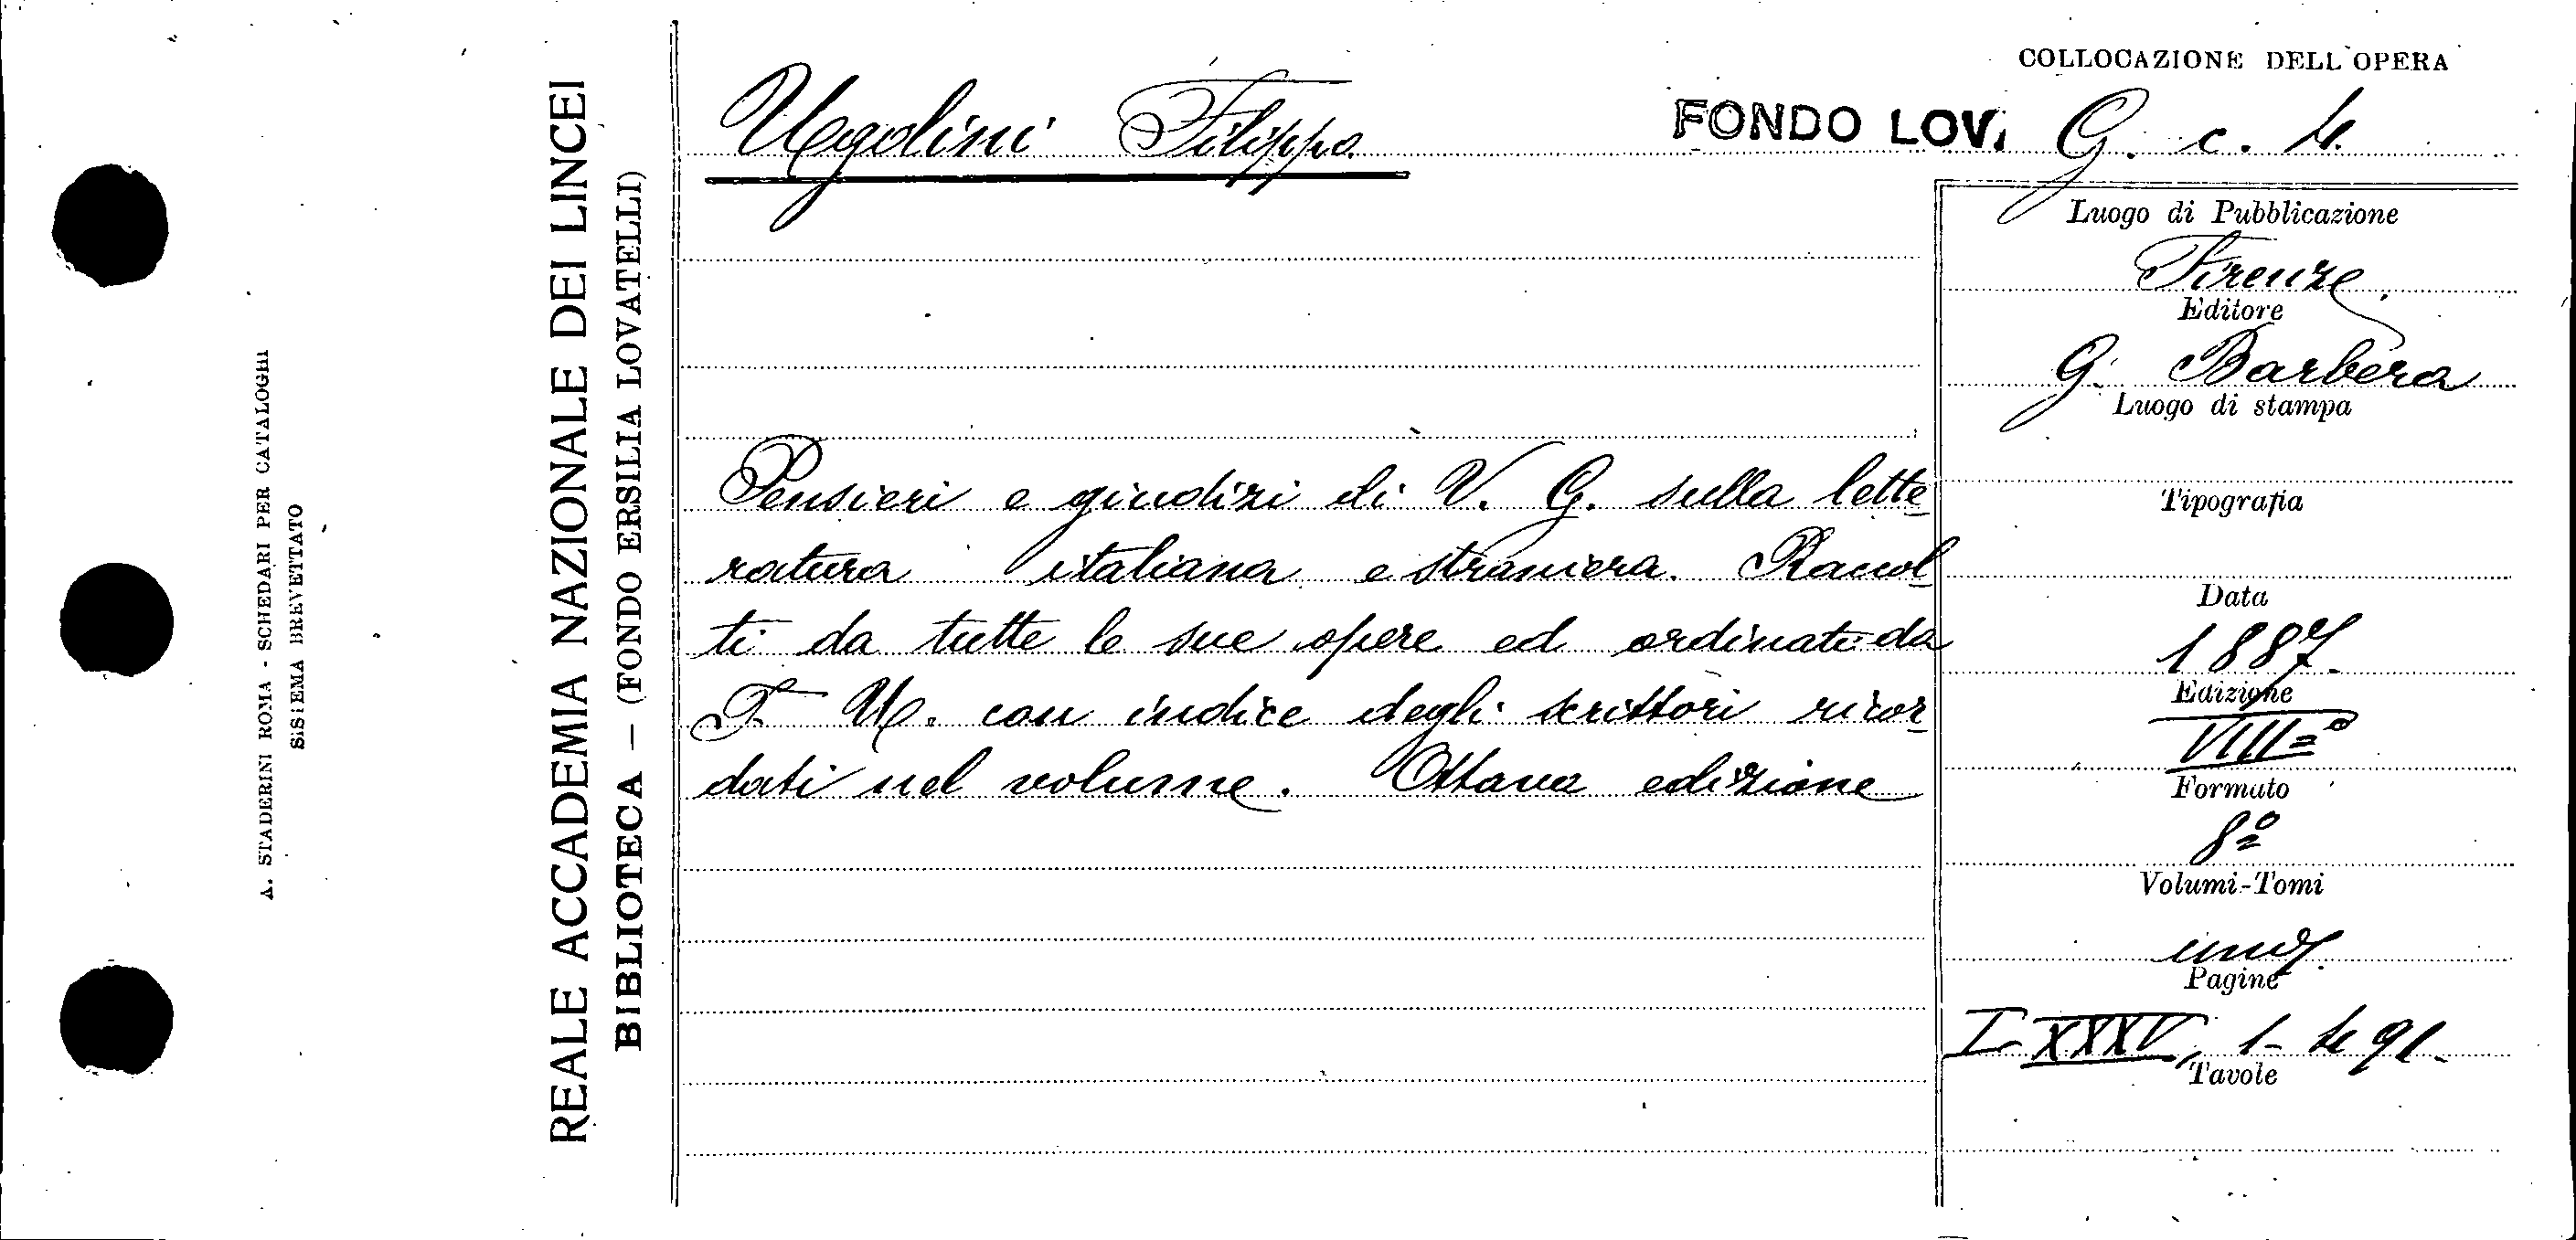 COLLOCAZIONE DELL'OPERA
Ugolini Filippo
FONDO LOV. G. c. 4.
Pensieri e giudizi di V. G. sulla lette
ratura italiana e straniera. Raccol
ti da tutte le sue opere ed ordinati da
F. U. con indice degli scrittori ricor
dati nel volume. Ottava edizione
Luogo di Pubblicazione
Firenze
Editore
G. Barbèra
Luogo di stampa
Tipografia
Data
1887
Edizione
VIII=ª
Formato
8º
Volumi-Tomi
uno
Pagine
I-XXXV, 1-491-
Tavole
REALE ACCADEMIA NAZIONALE DEI LINCEI
BIBLIOTECA — (FONDO ERSILIA LOVATELLI)
A. STADERINI ROMA - SCHEDARI PER CATALOGHI
SISTEMA BREVETTATO